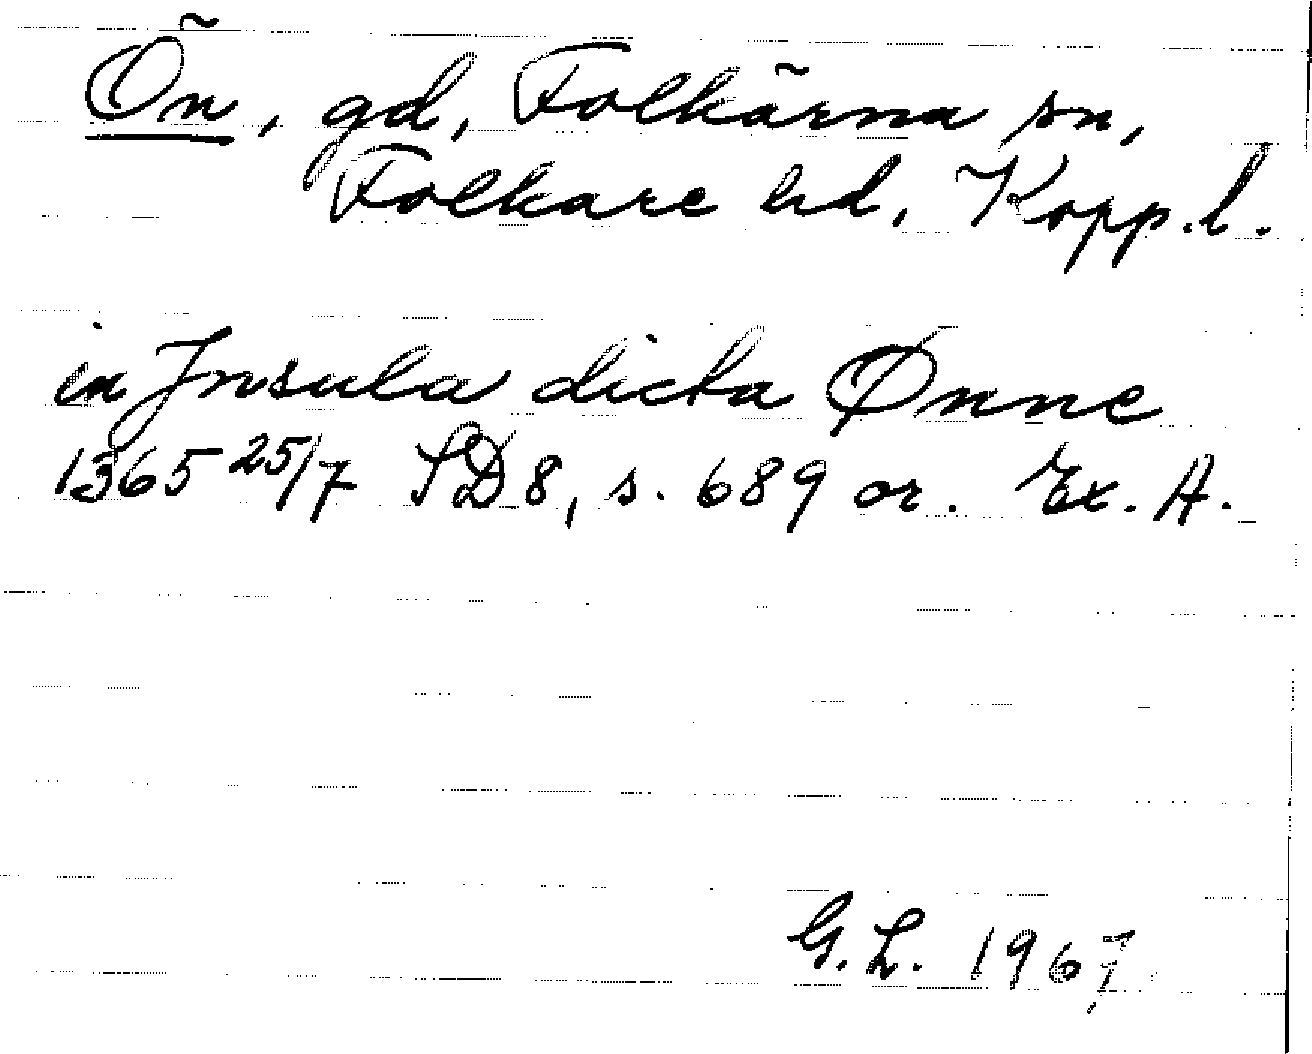 Ön, gd, Folkärna sn,
Folkare hd, Kopp.l.
in Jnsula dicta Ønne
1365 25/7 SD8, s. 689 or. Ex. A.
G. L. 1967